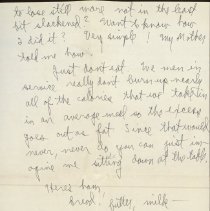 to lose still were not in the least
bit slackened? Want to know how
I did it? Very simple! My Mother
told me how.
Just don't eat. We men in
service really don't burn up nearly
all of the calories that we take in
in an average meal so the excess
goes out as fat. Since that would
never, never do you can just im-
agine me sitting down at the table.
Here's ham,
bread, butter, milk —